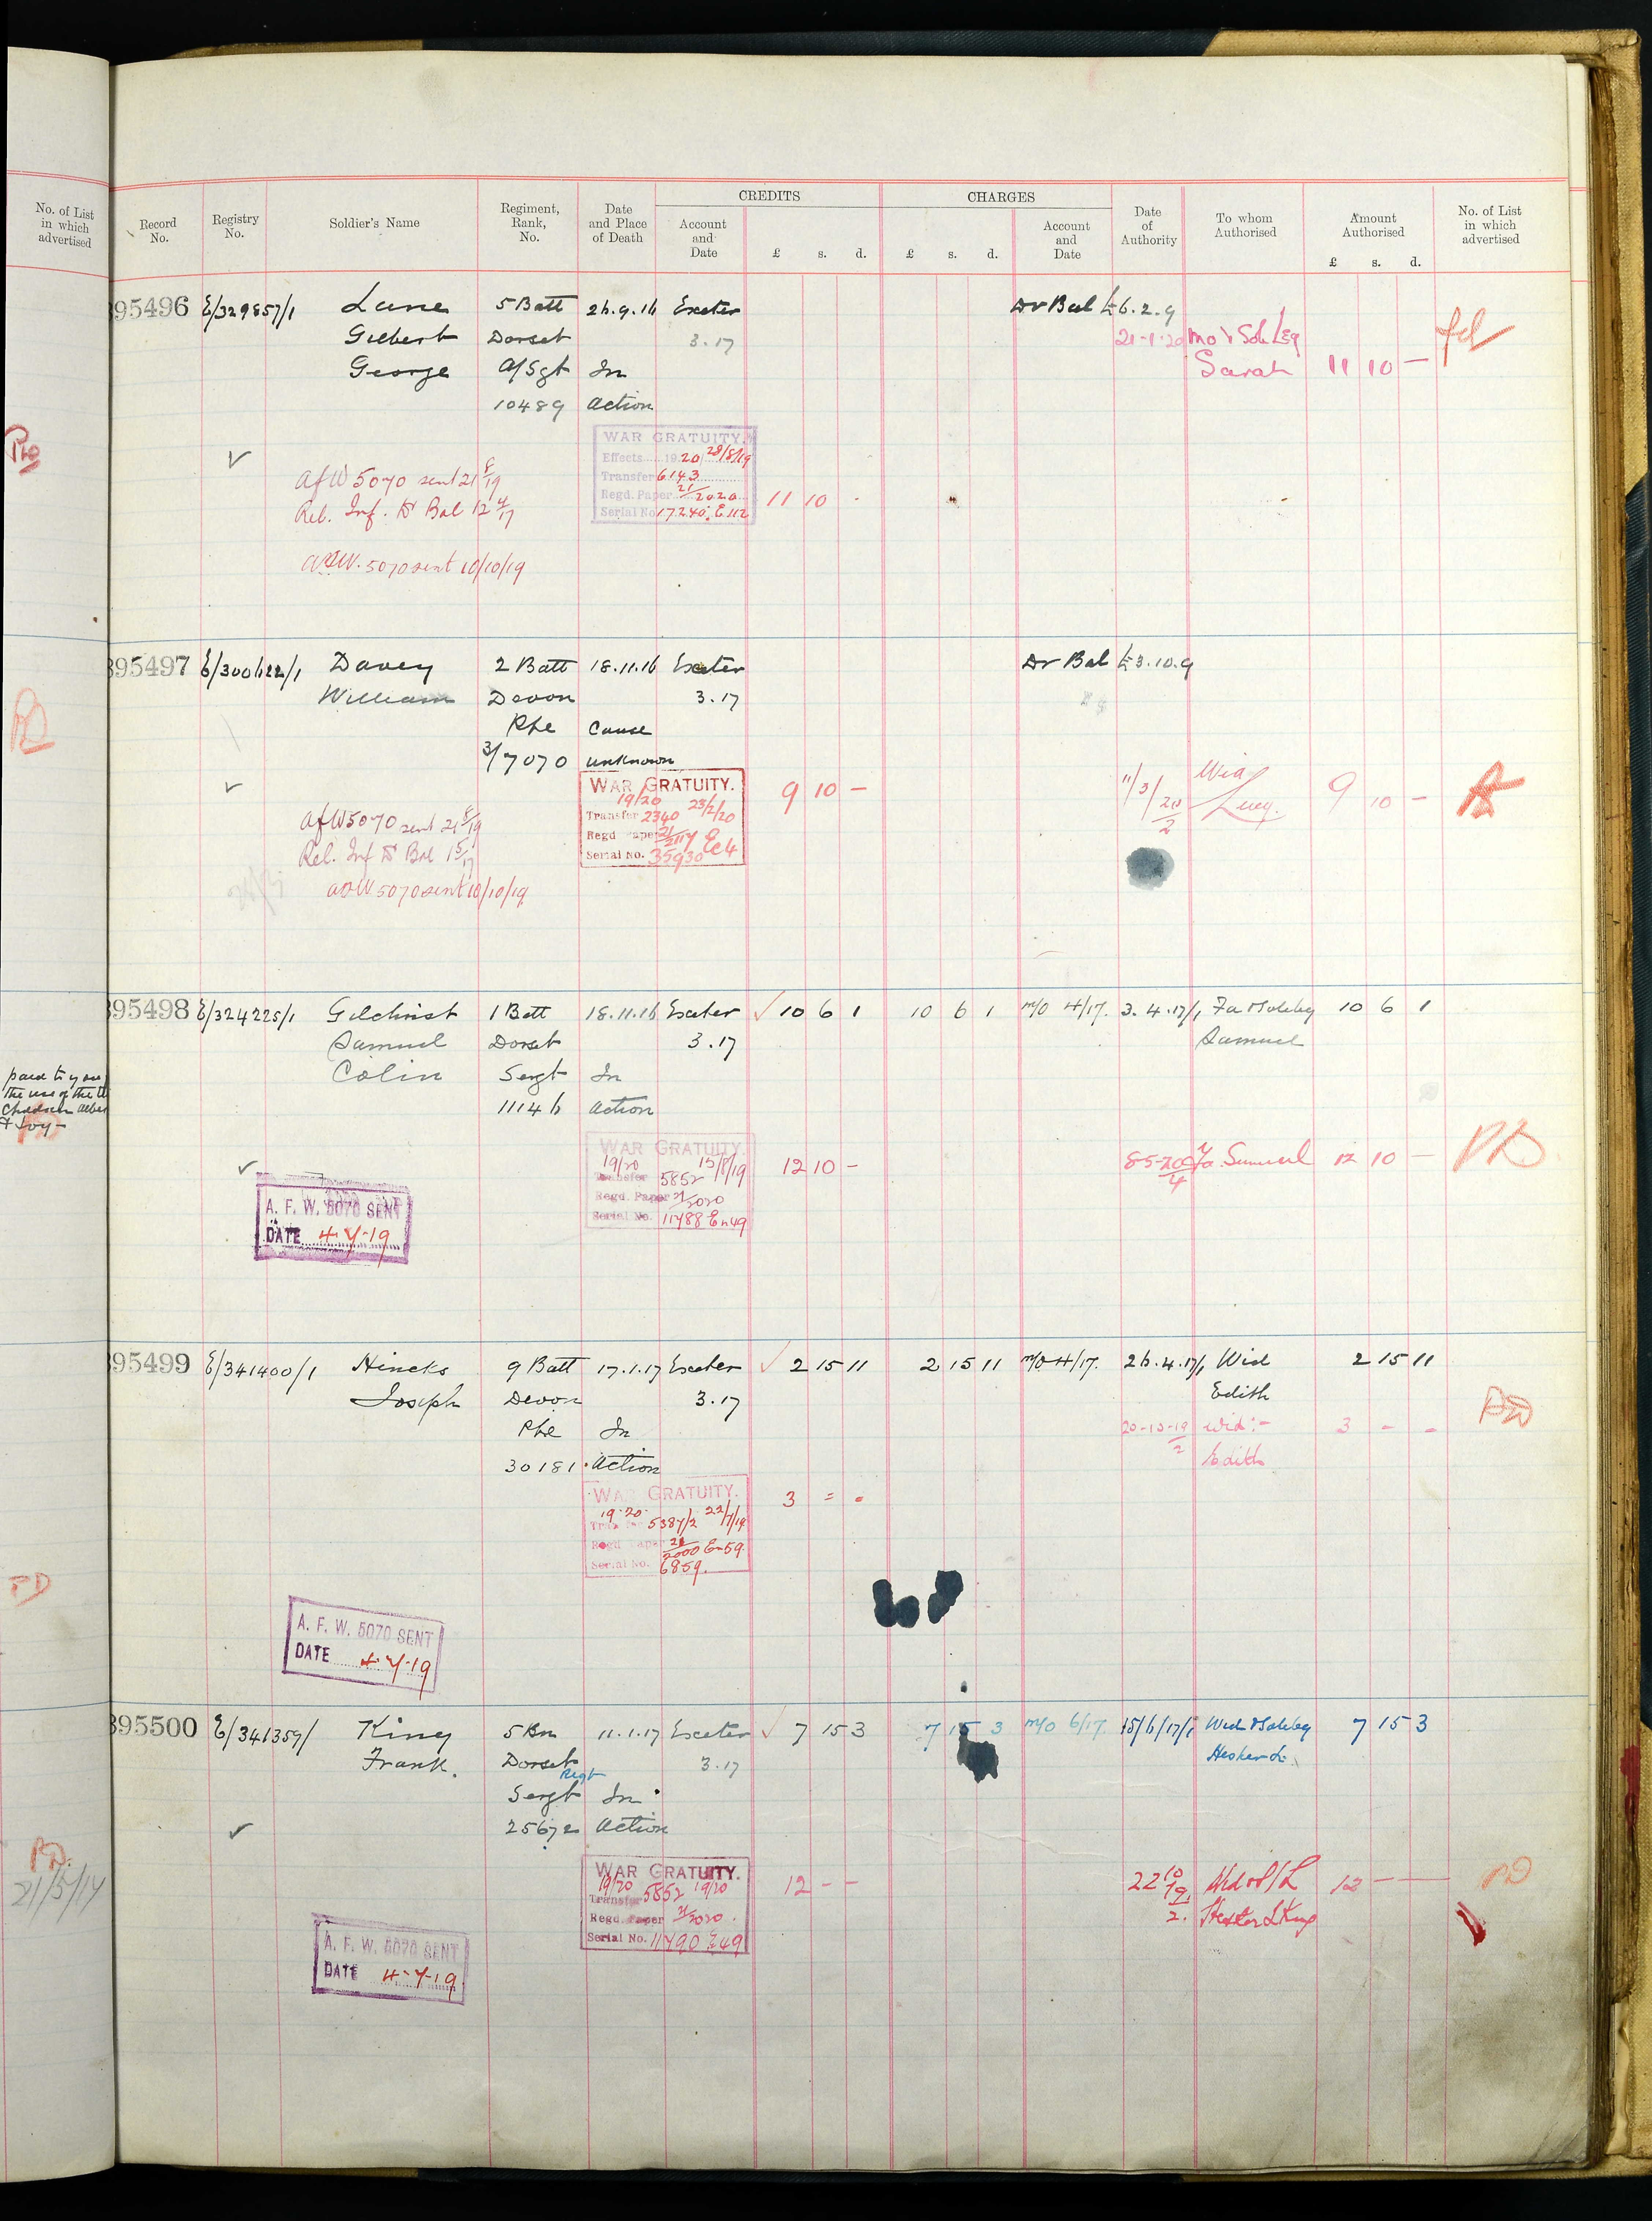 No. of List
in which
advertised
PD
paid to you
the use of the
Children
& Joy -
PD
PD
21/5/17
CREDITS CHARGES
Record No. Registry No. Soldier's Name Regiment, Rank, No. Date and Place of Death Account and Date £ s. d. £ s. d. Account and Date Date of Authority To whom Authorised Amount Authorised £ s. d. No. of List in which advertised
95496 E/329857/1 Lane 5 Batt 26.9.16 Exeter Dr Bal £6.2.9
Gilbert Dorset 3.17 21-1-20 Mo & Sole Leg
George A/Sgt In Sarah 11 10 —
10489 Action
WAR GRATUITY.
Effects 19 20 28/8/19
Transfer 6143
Regd. Paper 21/2020 11 10 -
Serial No 17240. E112
AfW 5070 sent 21 8/19
Rel. Inf. Dr Bal 12 4/17
AFW. 5070 sent 10/10/19
395497 E/300622/1 Davey 2 Batt 18.11.16 Exeter Dr Bal £3.10.9
William Devon 3.17
Pte Cause
3/7070 unknown
WAR GRATUITY. 9 10 — 11/3/20/2 Wid 9 10 —
19/20 23/2/20 Lucy.
Transfer 2340
Regd Paper 21/2117
Serial No. 35930 Ec4
AfW 5070 sent 21 8/19
Rel. Inf Dr Bal 1 5/17
AFW 5070 sent 10/10/19
395498 E/324225/1 Gilchrist 1 Batt 18.11.16 Exeter 10 6 1 10 6 1 M/O 4/17. 3.4.17/1 Fa & Soleleg 10 6 1
Samuel Dorset 3.17 Samuel
Colin Sergt In
11146 Action
WAR GRATUITY. 12 10 — 8-5-20/4 Fa. Samuel 12 10 — PD
19/20 15/8/19
Transfer 5852
Regd. Paper 21/2020
Serial No. 11788 E n 49
A. F. W. 5070 SENT
DATE 4-7-19
395499 E/341400/1 Hincks 9 Batt 17.1.17 Exeter 2 15 11 2 15 11 M/O 4/17. 26.4.17/1 Wid 2 15 11
Joseph Devon 3.17 Edith
Pte In 20-10-19/2 Wid:- 3 - -
30181 Action Edith
PD
WAR GRATUITY. 3 = -
19-20 22/7/19
Transfer 5387/2
Regd Paper 21/2000 E-59.
Serial No. 6859.
A. F. W. 5070 SENT
DATE 4-7-19
395500 E/341359/ King 5 Bn 11.1.17 Exeter 7 15 3 7 15 3 M/O 6/17. 15/6/17/1 Wid & Soleleg 7 15 3
Frank. Dorset Regt 3.17 Hester L.
Sergt In
25672 Action
WAR GRATUITY. 12 — — 22 10/19/2. Wid & S/L 12 — — PD
19/20 19/20 Hester L King
Transfer 5852
Regd. Paper 21/2020.
Serial No. 11790 E 49
A. F. W. 5070 SENT
DATE 4-7-19